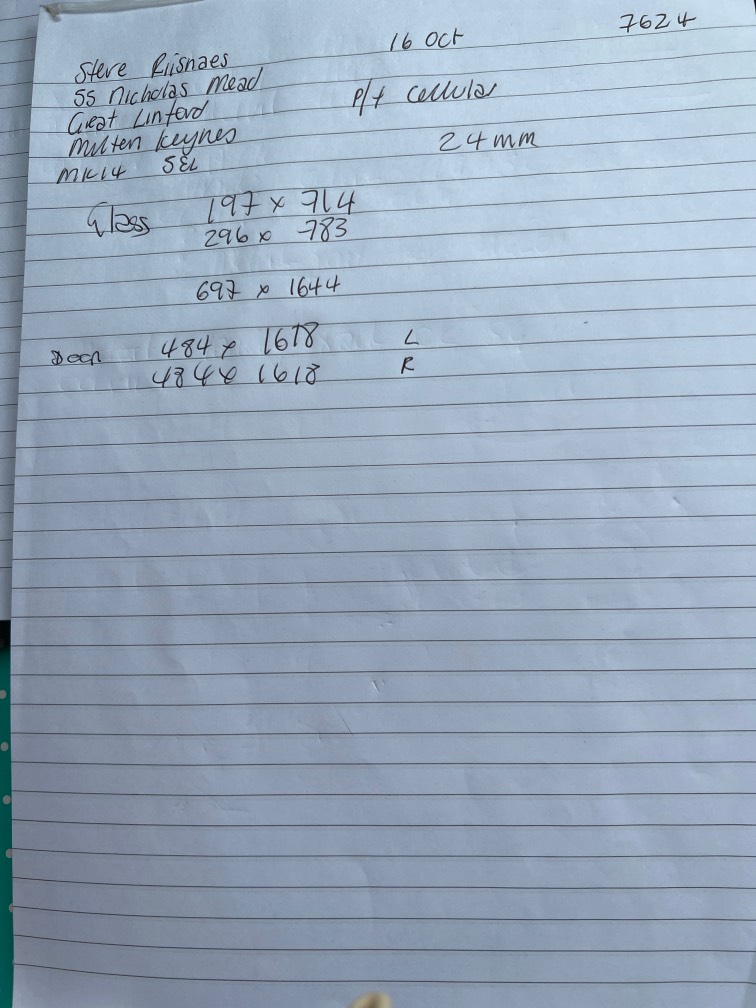 7624
16 Oct
Steve Riisnaes
55 Nicholas Mead
Great Linford
P/t cellular
Milten Keynes
24mm
MK14 5EL
Glass 197 x 714
296 x 783
697 x 1644
Door 484 x 1618 L
484 x 1618 R